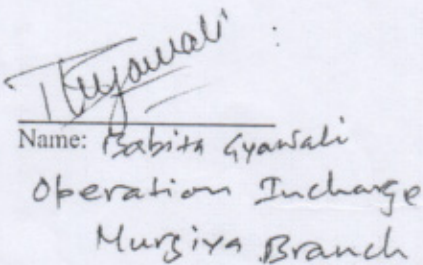 Name: Babita Gyawali
Operation Incharge
Murgiya Branch